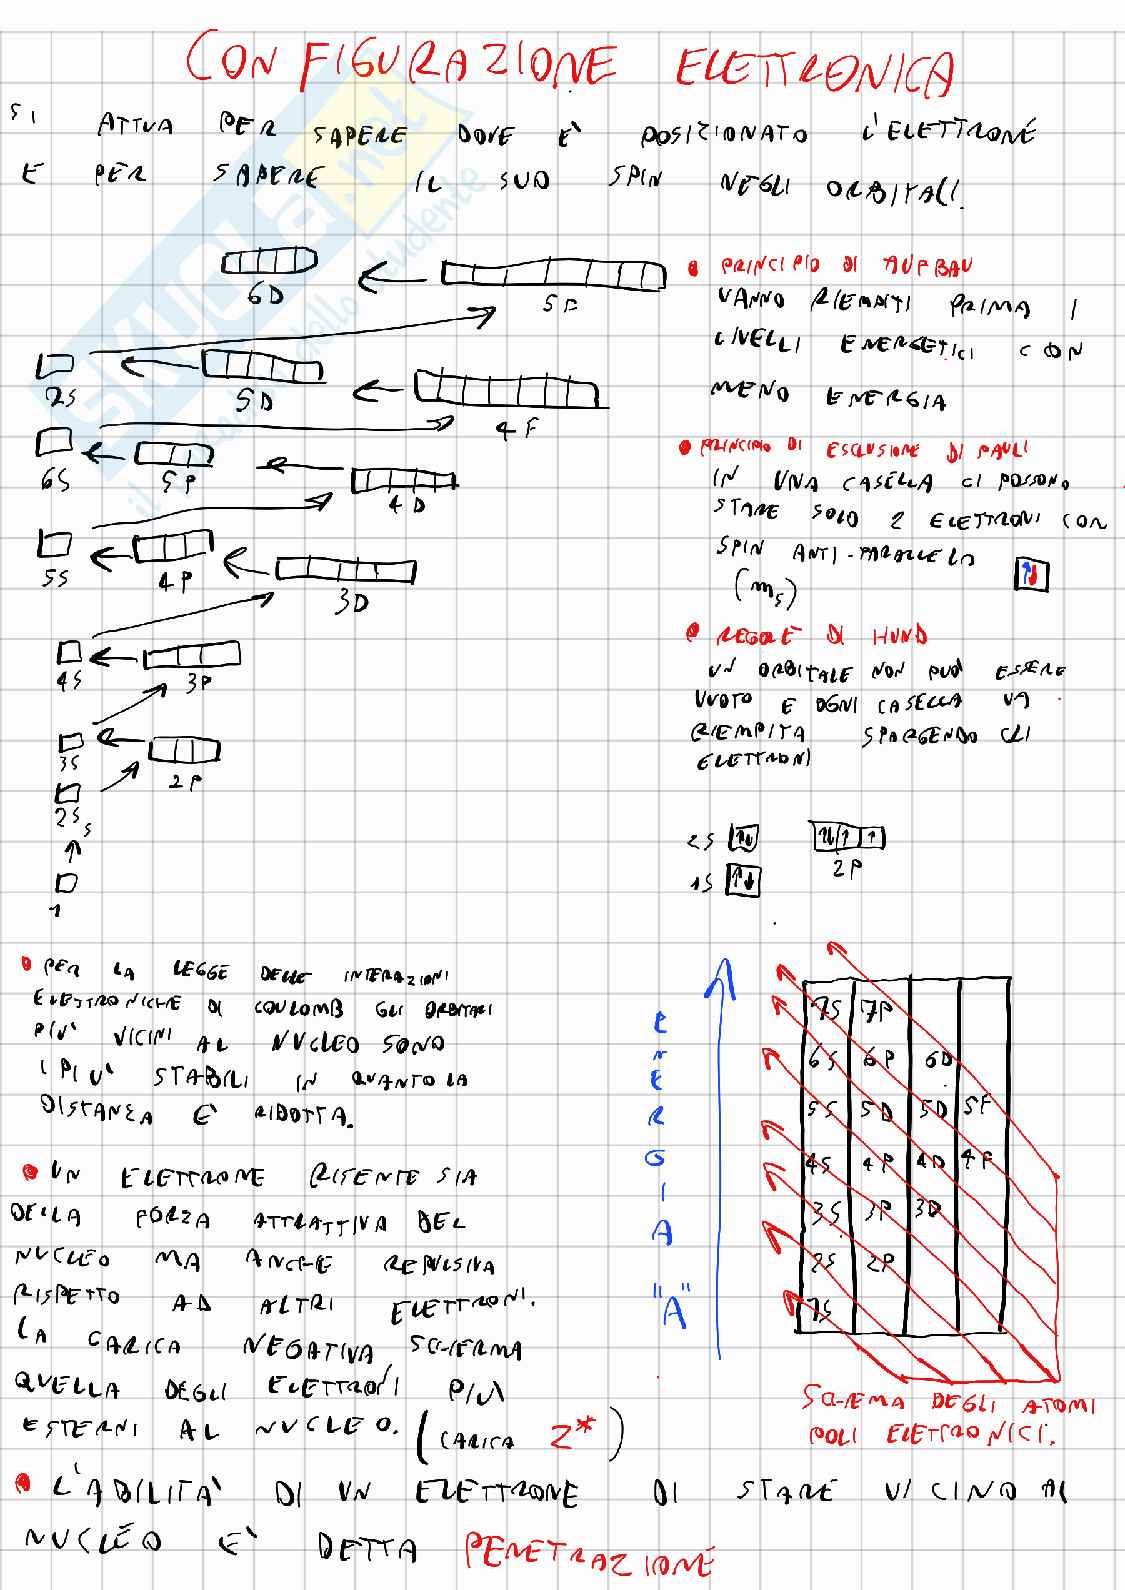 CONFIGURAZIONE ELETTRONICA
SI ATTUA PER SAPERE DOVE È POSIZIONATO L'ELETTRONE
E PER SAPERE IL SUO SPIN NEGLI ORBITALI.
6D
5F
7S
5D
4F
6S
5P
4D
5S
4P
3D
4S
3P
3S
2P
2S
S
1
• PRINCIPIO DI AUFBAU
VANNO RIEMPITI PRIMA I
LIVELLI ENERGETICI CON
MENO ENERGIA
• PRINCIPIO DI ESCLUSIONE DI PAULI
IN UNA CASELLA CI POSSONO
STARE SOLO 2 ELETTRONI CON
SPIN ANTI-PARALLELO
(ms)
• REGOLE DI HUND
UN ORBITALE NON PUÒ ESSERE
VUOTO E OGNI CASELLA VA
RIEMPITA SPARGENDO GLI
ELETTRONI
2S
2P
1S
• PER LA LEGGE DELLE INTERAZIONI
ELETTRONICHE DI COULOMB GLI ORBITALI
PIÙ VICINI AL NUCLEO SONO
I PIÙ STABILI IN QUANTO LA
DISTANZA È RIDOTTA.
• UN ELETTRONE RISENTE SIA
DELLA FORZA ATTRATTIVA DEL
NUCLEO MA ANCHE REPULSIVA
RISPETTO AD ALTRI ELETTRONI.
LA CARICA NEGATIVA SCHERMA
QUELLA DEGLI ELETTRONI PIÙ
ESTERNI AL NUCLEO. (CARICA Z*)
ENERGIA "A"
7S 7P
6S 6P 6D
5S 5D 5D 5F
4S 4P 4D 4F
3S 3P 3D
2S 2P
1S
SCHEMA DEGLI ATOMI
POLI ELETTRONICI.
• L'ABILITÀ DI UN ELETTRONE DI STARE VICINO AL
NUCLEO È DETTA PENETRAZIONE
SKUOLA.net